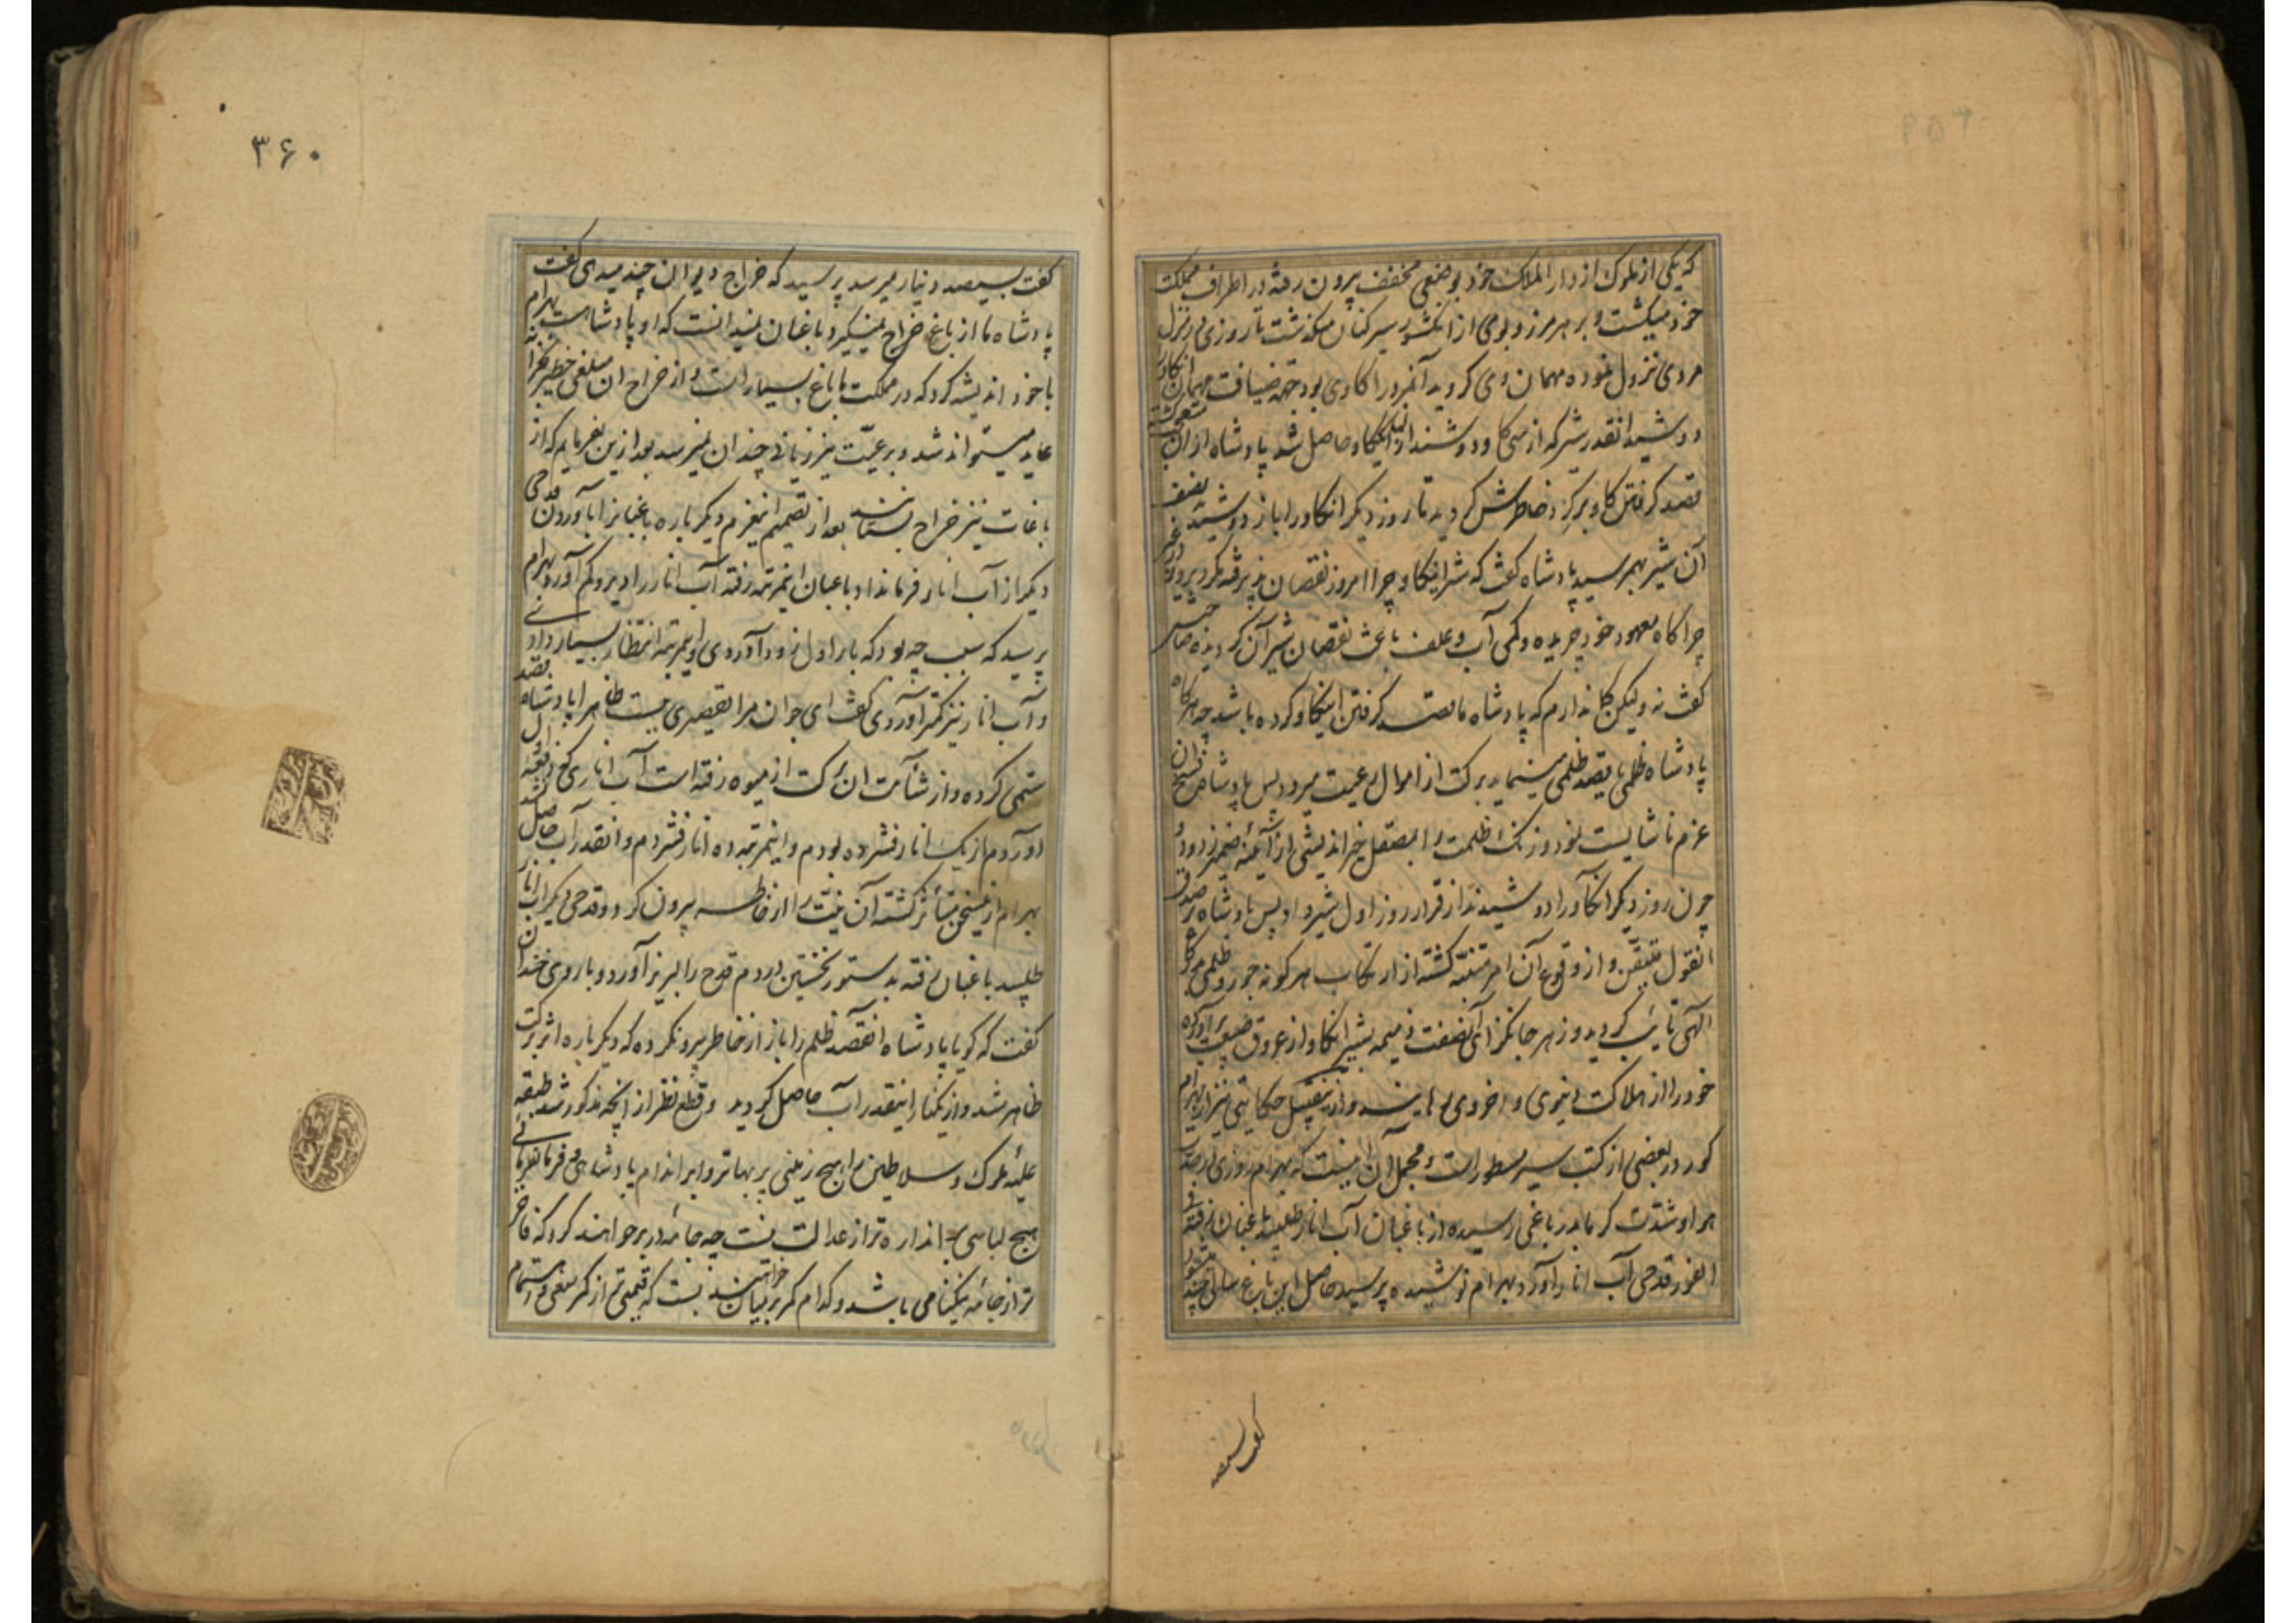 که یکی از ملوک از دار الملک خود بوضعی مخفف بیرون رفته در اطراف مملکت
خود میکشت و بر هر مرز و بومی از انکشور سیر کنان میکذشت تا روزی در منزل
مردی نزول نموده مهمان وی کردید آنمرد را کاوی بود جهة ضیافت مهمان انکاو را
دوشید انقدر شیر که از سی کاو دوشند از انیکاو حاصل شد پادشاه از ان متعجب کشته
قصد کرفتن کاو مرکوز خاطرش کردید تا روز دیکر انکاو را باز دوشید نصف
آن شیر بهم رسید پادشاه کفت که شیر اینکاو چرا امروز نقصان پذیرفته مکر دیروز در غیر
چراکاه معهود خود چریده و کمی آب و علف باعث نقصان شیر آن کردیده صاحبش
کفت نه ولیکن کمان دارم که پادشاه ما قصد کرفتن اینکاو کرده باشد چه هرکاه
پادشاه ظلمی یا قصد ظلمی مینماید برکت از اموال رعیت میرود پس پادشاه فسخ ان
عزم ناشایست نمود و زنک ظلمت را بمصقل خیر اندیشی از آئینه ضمیر زدود و
چون روز دیکر انکاو را دوشیدند از قرار روز اول شیر داد پس پادشاه را صدق
انقول متیقن و از وقوع آن امر متنبه کشته از ارتکاب هر کونه جور و ظلمی
آلهی تایب کردید و زهر جانکزای آنصفت ذمیمه بشیر انکاو از عروق طبیعت برآورده
خود را از هلاکت دنیوی و اخروی رهانید و ازینقبیل حکایتی نیز از بهرام
کور در بعضی از کتب سیر مسطور است و مجمل آن اینست که بهرام روزی در
هوا و شدت کرما بدر باغی رسیده از باغبان آب انار طلبید باغبان رفته فی
الفور قدحی آب انار آورد بهرام نوشیده پرسید حاصل این باغ سالی چند میشود
کفت سیصد
۳۶۰
کفت سیصد دینار میرسد پرسید که خراج دیوان چند میدهی کفت
پادشاه ما از باغ خراج نمیکیرد باغبان نمیدانست که او پادشاهست بهرام
با خود اندیشه کرد که در مملکت ما باغ بسیار است و از خراج ان مبلغی خطیر بخزانه
عاید میتواند شد و برعیت نیز زیانی چندان نمیرسد بعد ازین بفرمایم که از
باغات نیز خراج بستانند بعد از تصمیم اینعزم دیکر باره باغبانرا بآوردن قدحی
دیکر از آب انار فرمانداد باغبان اینمرتبه رفته آب انار را دیر و کم آورد بهرام
پرسید که سبب چه بود که بار اول زود آوردی و اینمرتبه انتظار بسیار دادی
و آب انار نیز کمتر آوردی کفت ای جوان مرا تقصیری نیست ظاهرا پادشاه قصد
ستمی کرده و از شآمت ان برکت از میوه رفته است آب اناری که دفعه اول
آوردم از یک انار فشرده بودم و اینمرتبه ده انار فشردم و انقدر آب حاصل نشد
بهرام ازینسخن متأثر کشته آن نیت را از خاطر بیرون کرد و قدحی دیکر آب انار
طلبید باغبان رفته بدستور نخستین در دم قدح را لبریز آورد و با روی خندان
کفت که کویا پادشاه انقصد ظلم را باز از خاطر بیرونکرده که دیکر باره اثر برکت
ظاهر شد و از یکنار اینقدر آب حاصل کردید و قطع نظر از آنچه مذکور شد طبقه
علیه ملوک و سلاطین را هیچ زینتی پر بهاتر و بر اندام پادشاهی و فرمانفرمائی
هیچ لباسی باندازه تر از عدالت نیست چه جامه در بر خواهند کرد که فاخر
تر از جامه نیکنامی باشد و کدام کمر بر میان خواهند بست که قیمتی تر از کمر سعی و اهتمام